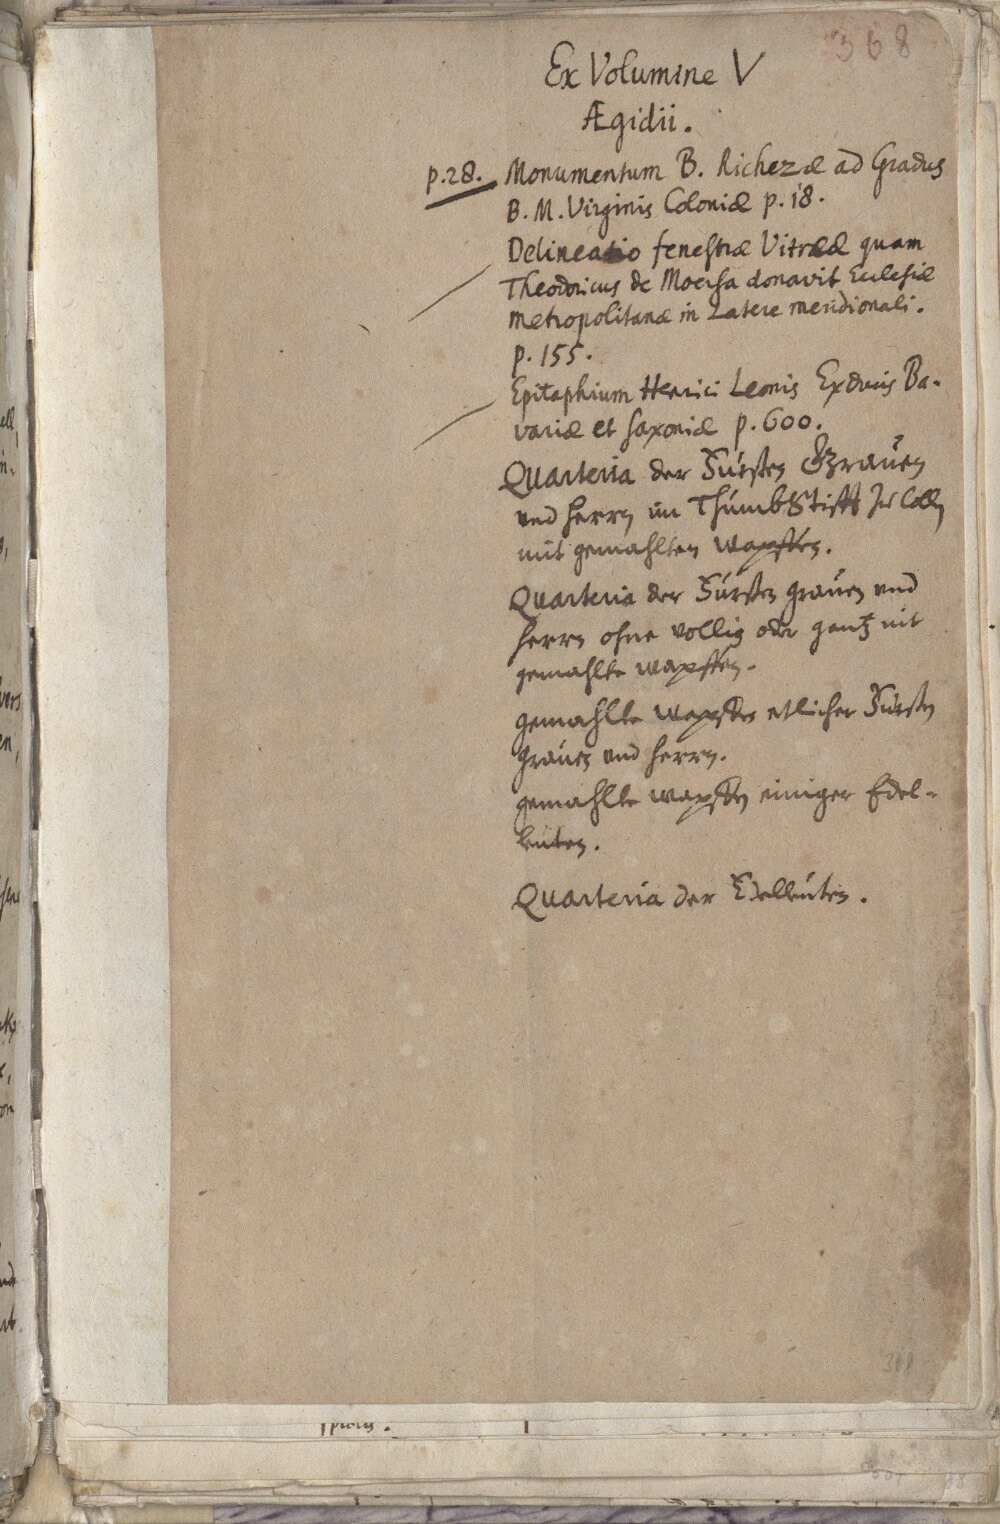 368
Ex Volumine V
Ægidii.
p.28. Monumentum B. Richezæ ad Gradus
B. M. Virginis Coloniæ p. 18.
Delineatio fenestræ Vitreæ quam
Theodoricus de Moersa donavit Ecclesiæ
metropolitanæ in Latere meridionali.
p. 155.
Epitaphium Henrici Leonis Exducis Ba-
variæ et Saxoniæ p. 600.
Quarteria der Fürsten Graven
und herrn im ThumbStifft zu Colln
mit gemahlten wapffen.
Quarteria der Fürsten graven und
herrn ohne vollig oder gentz mit
gemahlte wapffen.
gemahlte wapffen etlicher Fürsten
graven und herrn.
gemahlte wapffen einiger Edel-
leuten.
Quarteria der Edelleuten.